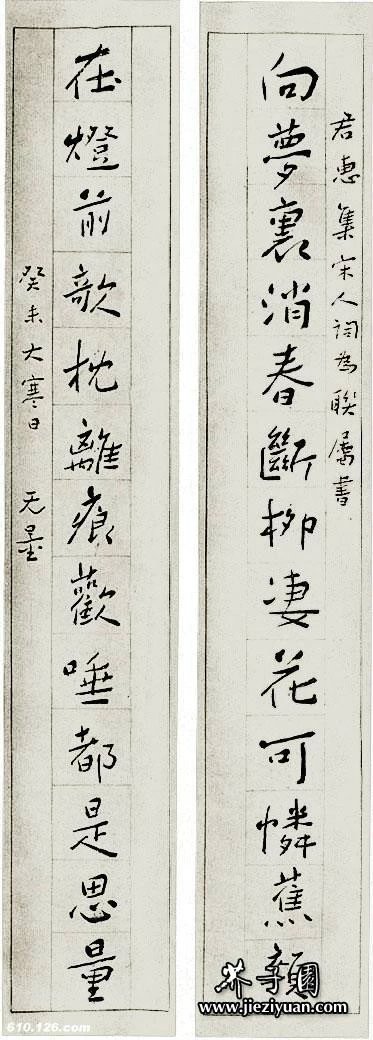 君惠集宋人詞為聯屬書
向夢裏消春斷柳凄花可憐蕉
在燈前欹枕離痕歡唾都是思量
癸未大寒日 无量
www.jieziyuan.com
610.126.com